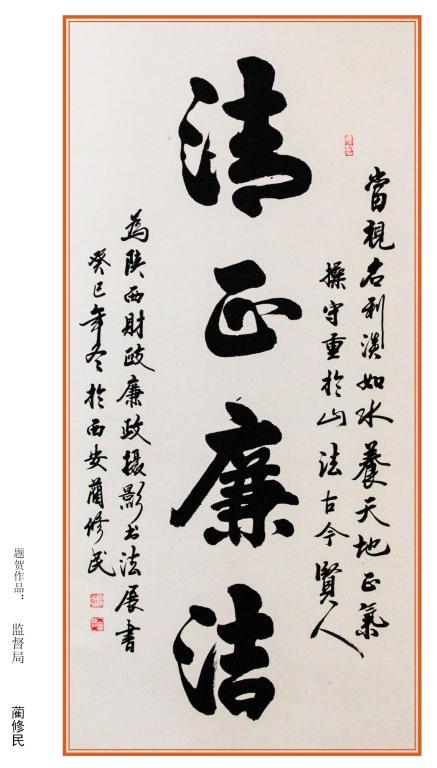 當視名利淡如水養天地正氣
操守重於山法古今賢人
清正廉洁
為陕西財政廉政摄影书法展書
癸巳年冬於西安蔺修民
题贺作品： 监督局 蔺修民